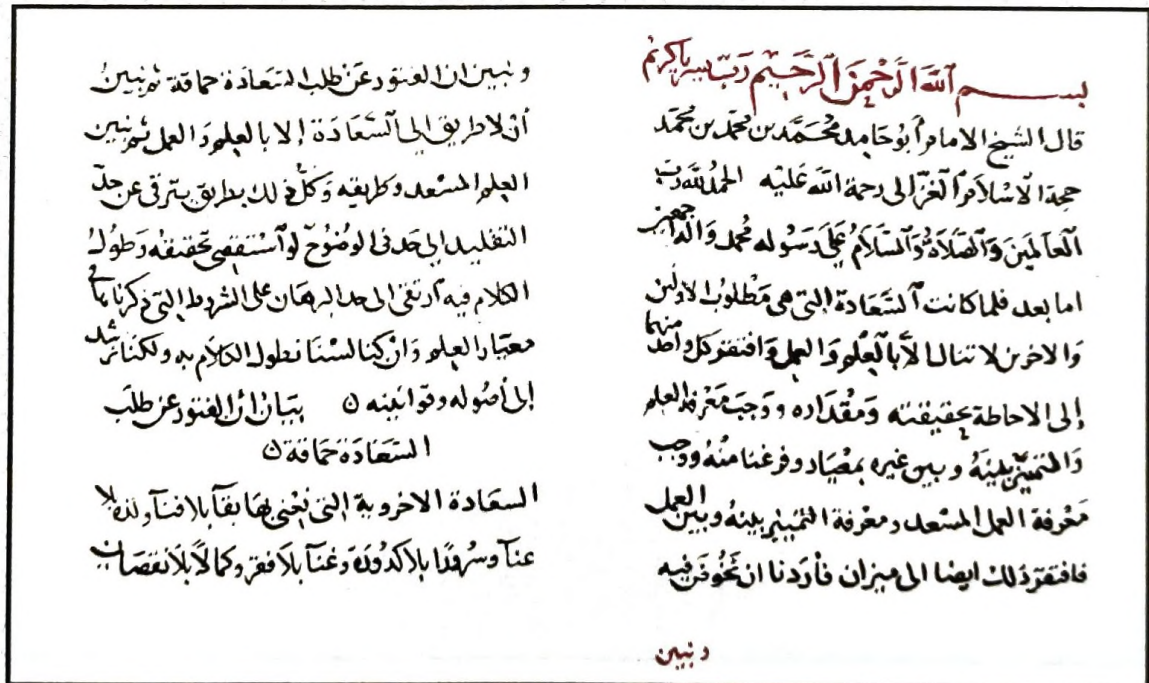 بسم الله الرحمن الرحيم رب يسر ياكريم
قال الشيخ الامام أبو حامد محمد بن محمد بن محمد
حجة الاسلام الغزالى رحمة الله عليه الحمد لله رب
العالمين والصلاة والسلام على رسوله محمد واله اجمعين
اما بعد فلما كانت السعادة التى هى مطلوب الاولين
والاخرين لا تنال الا بالعلم والعمل وافتقر كل واحد منهما
إلى الاحاطة بحقيقته ومقداره ووجب معرفة العلم
والتمييز بينه وبين غيره بمعيار وفرغنا منه ووجب
معرفة العمل المسعد ومعرفة التمييز بينه وبين العمل
فافتقر ذلك ايضا الى ميزان فأردنا ان نخوض فيه
ونبين
ونبين ان الفتور عن طلب السعادة حماقة ثم نبين
أن لا طريق إلى السعادة إلا بالعلم والعمل ثم نبين
العلم المسعد وطريقه وكل ذلك بطريق يترقى عن حد
التقليد إلى حد فى الوضوح لو استقصى تحقيقه وطول
الكلام فيه ارتقى الى حد البرهان على الشروط التى ذكرناها فى
معيار العلم وان كنا لسنا نطول الكلام به ولكنا نرشد
إلى أصوله وقوانينه ۞ بيان ان الفتور عن طلب
السعادة حماقة ۞
السعادة الاخروية التى نعنى بها بقآ بلا فنآ ولذة بلا
عنآ وسرورا بلا كدورة وغنآ بلا فقر وكمالا بلا نقصان